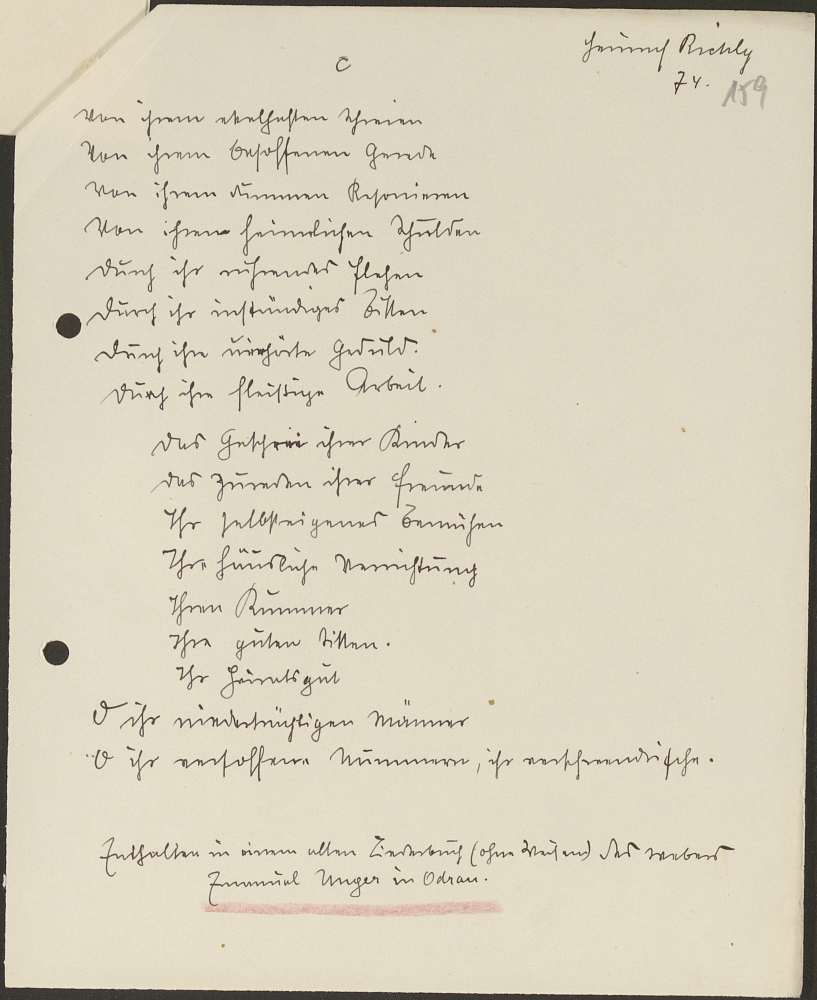 Heinrich Richly
74.
159
c
Von ihrem ekelhaften Schreien
Von ihrem besoffenen Gerede
Von ihrem dummen Resonieren
Von ihren heimlichen Schulden
Durch ihr rührendes Flehen
Durch ihr inständiges Bitten
Durch ihre unerhörte Geduld.
Durch ihre fleißige Arbeit.
Das Geschrei ihrer Kinder
Das Zureden ihrer Freunde
Ihr selbsteigenes Bemühen
Ihre häusliche Verrichtung
Ihren Kummer
Ihre guten Sitten.
Ihr Heiratsgut
O ihr niederträchtigen Männer
O ihr versoffene Nummern, ihr verschwenderische.
Enthalten in einem alten Liederbuch (ohne Weisen) des Webers
Emanuel Unger in Odrau.